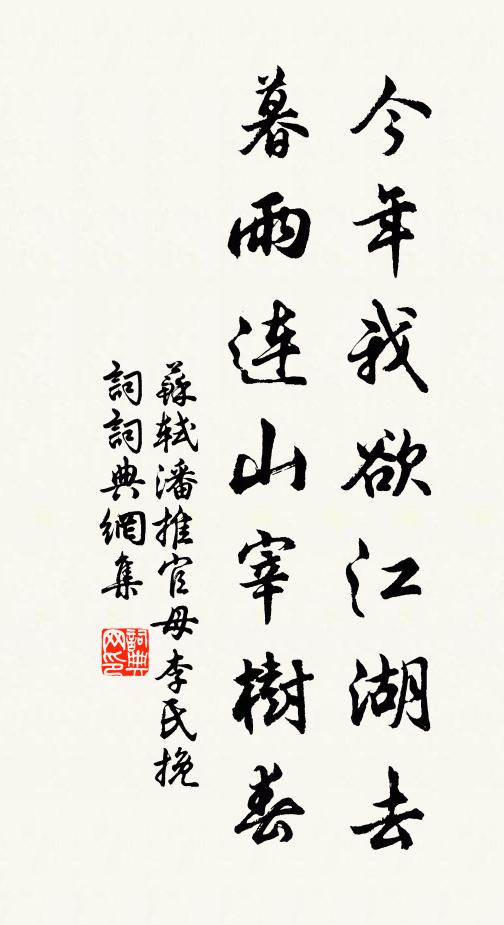 今年我欲江湖去
暮雨連山宰樹春
蘇軾潘推官母李氏挽
詞詞典網集
詞典網印